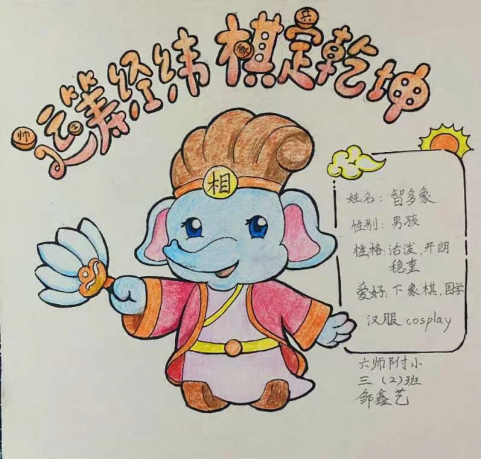 运筹经纬 棋定乾坤
相
姓名：智多象
性别：男孩
性格：活泼、开朗
稳重
爱好：下象棋、国学
汉服 cosplay
六师附小
三（2）班
邹鑫艺